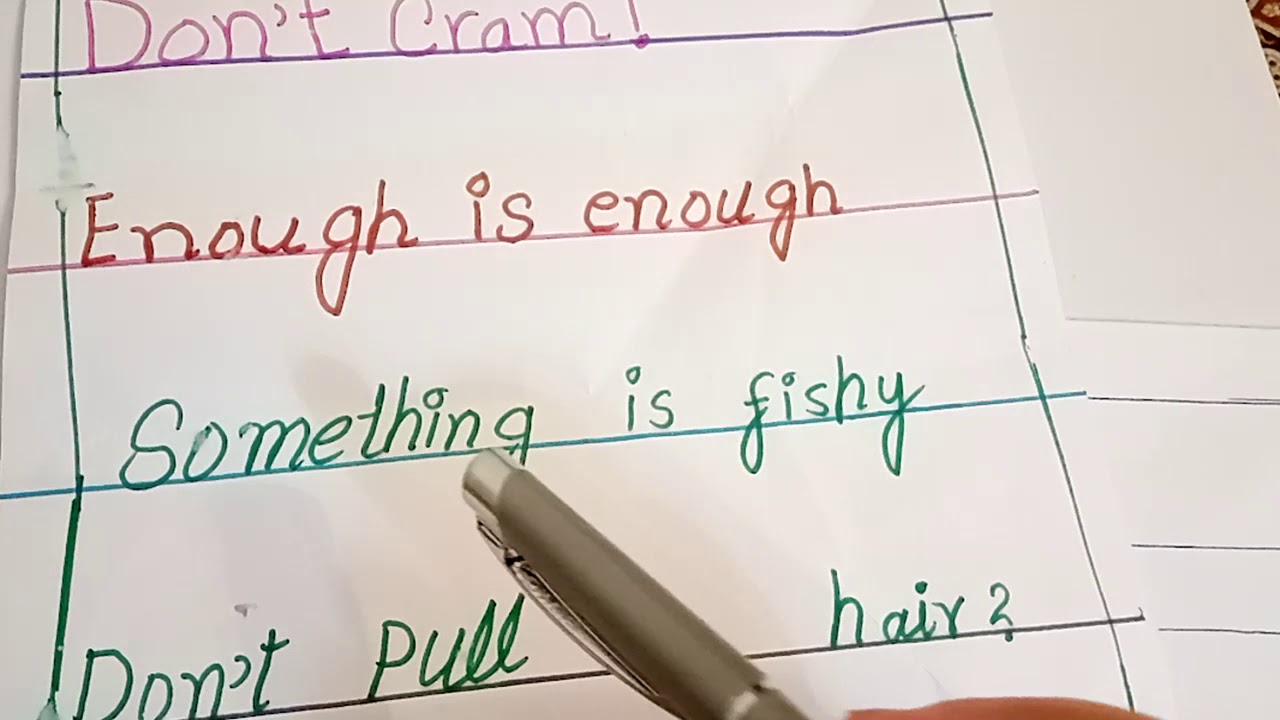 Don't Cram!
Enough is enough
Something is fishy
Don't Pull hair?